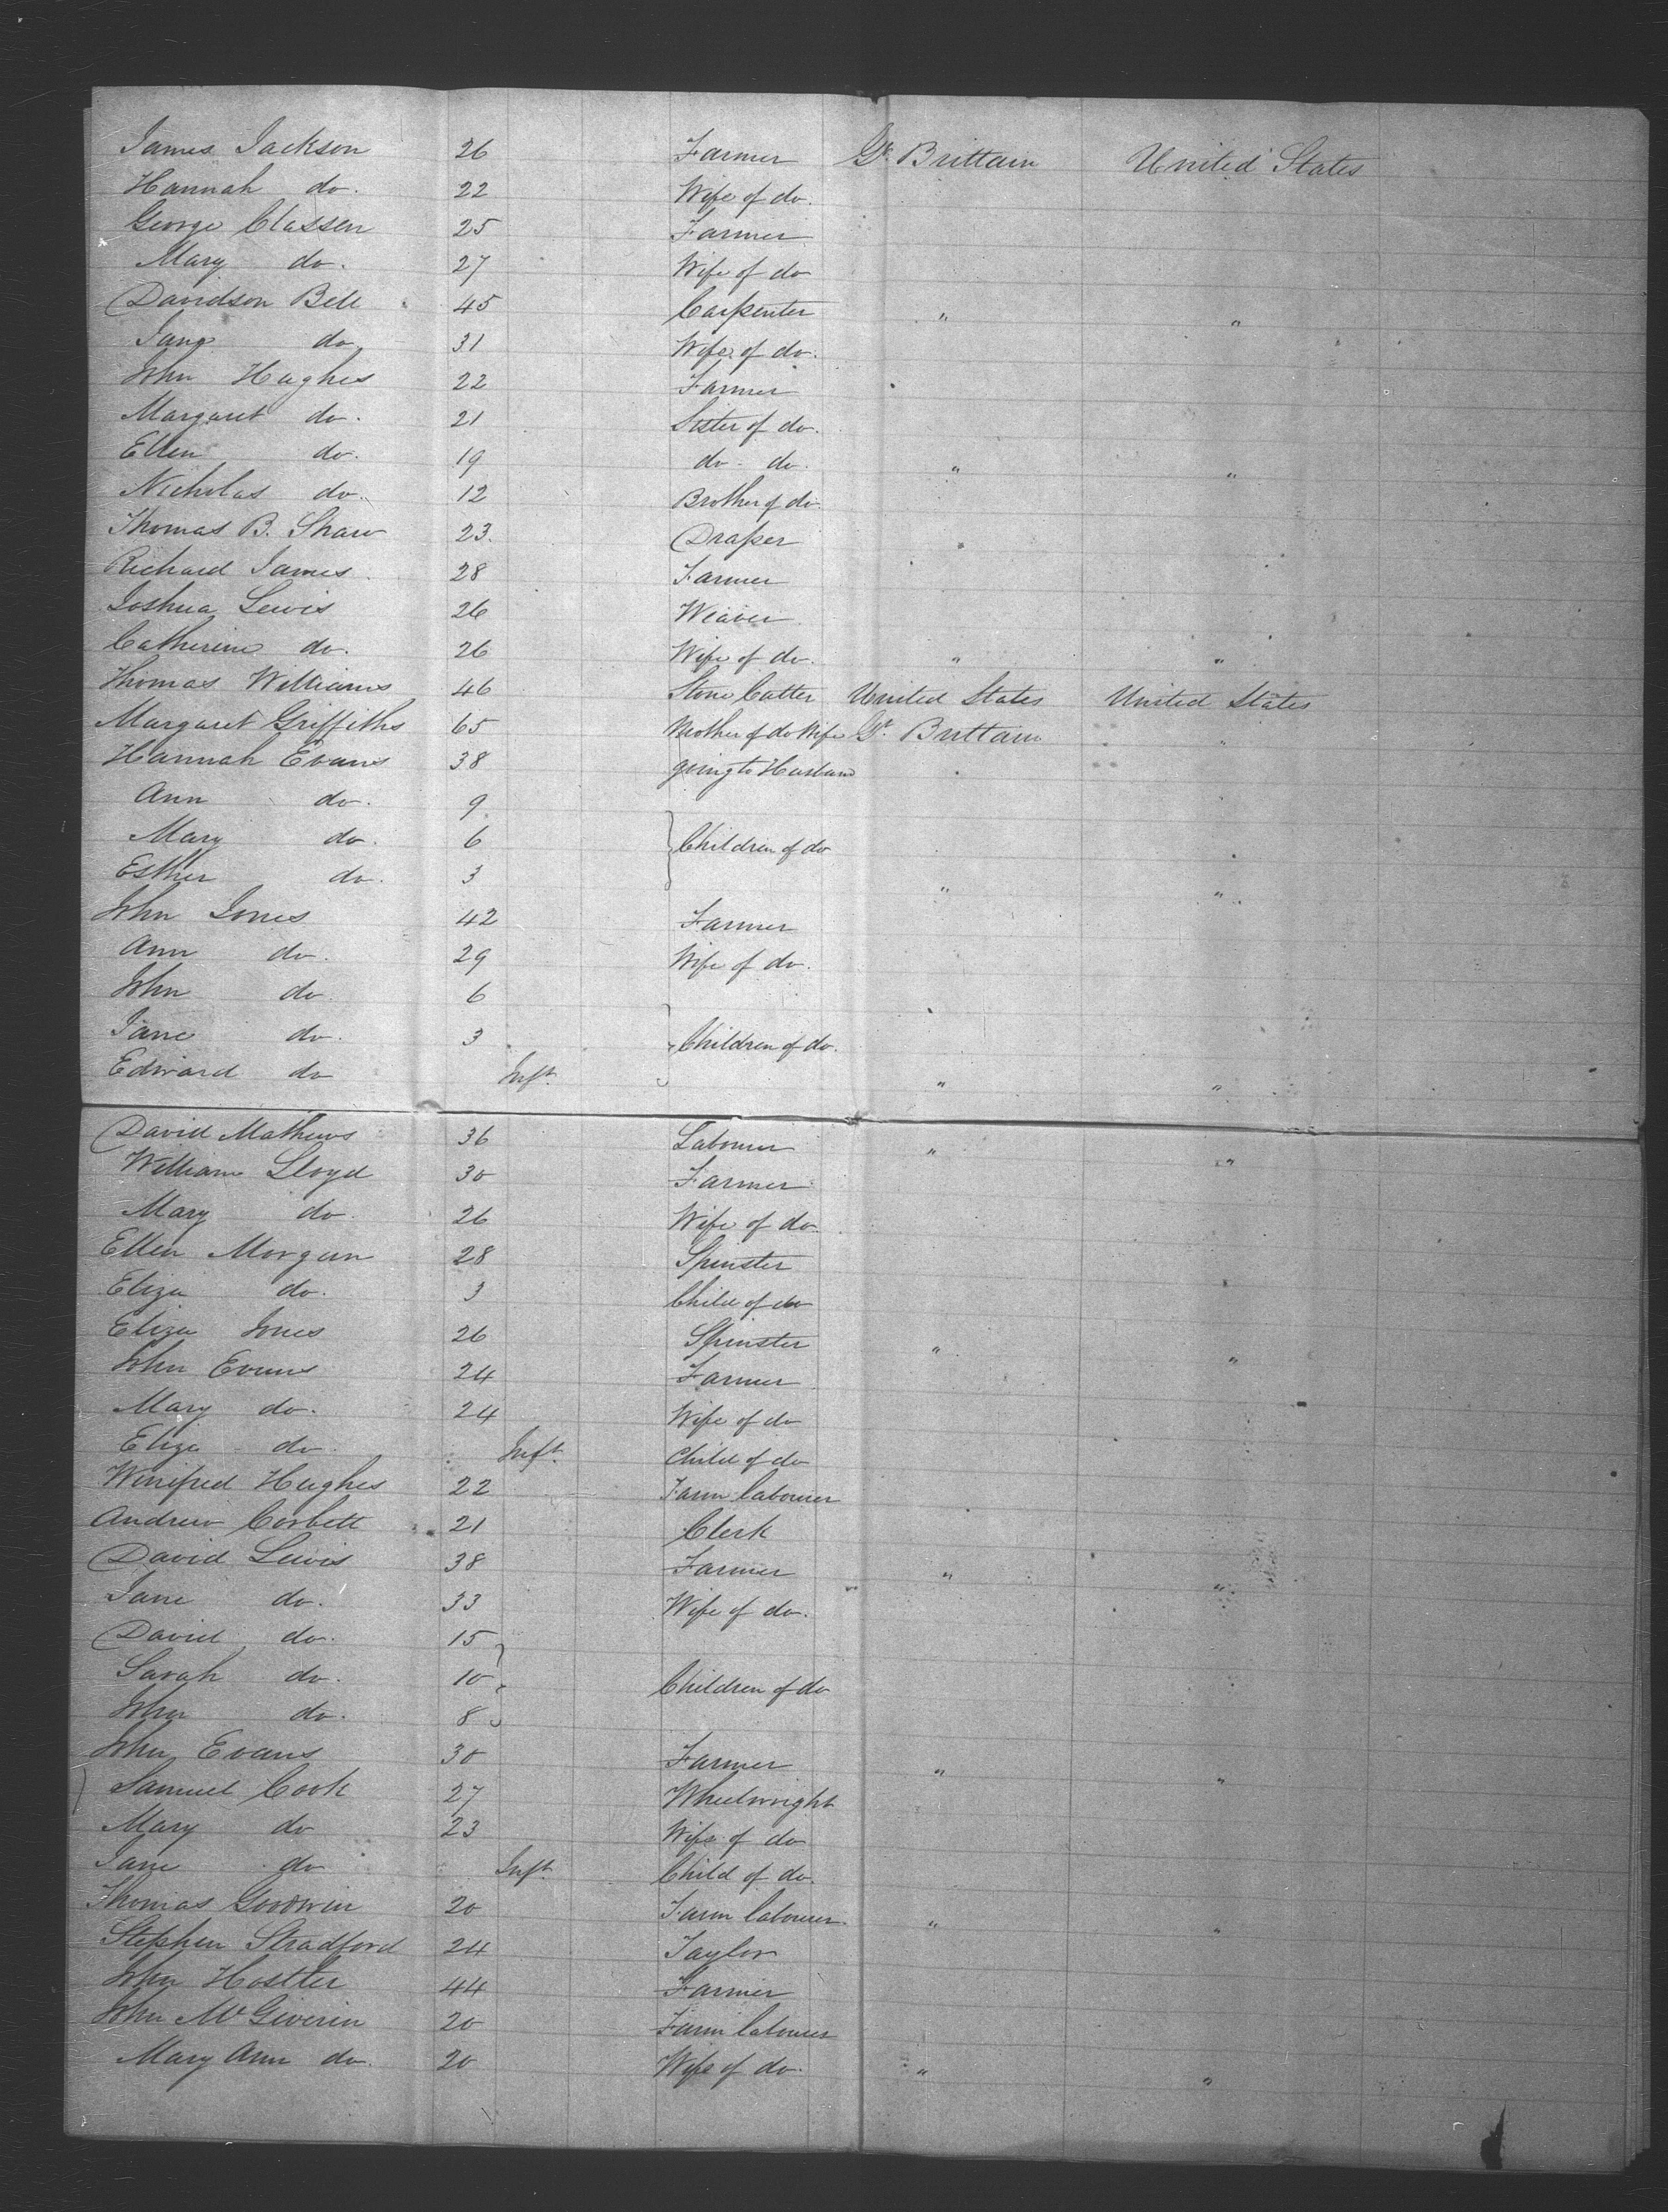 James Jackson 26 Farmer Gt. Brittain United States
Hannah do. 22 Wife of do.
George Classen 25 Farmer
Mary do. 27 Wife of do
Davidson Bell 45 Carpenter " "
Jane do 31 Wife of do.
John Hughes 22 Farmer
Margaret do. 21 Sister of do.
Ellen do. 19 do - do. " "
Nicholas do. 12 Brother of do.
Thomas B. Shaw 23. Draper
Richard James 28 Farmer
Joshua Lewis 26 Weaver
Catherine do. 26 Wife of do. " "
Thomas Williams 46 Stone Cutter United States United States
Margaret Griffiths 65 Mother of do Wife Gt. Brittain "
Hannah Evans 38 going to Husband
Ann do. 9
Mary do. 6 Children of do
Esther do. 3 " "
John Jones 42 Farmer
Ann do. 29 Wife of do.
John do. 6
Jane do. 3 Children of do.
Edward do Inft. " "
David Mathews 36 Labourer " "
William Lloyd 30 Farmer
Mary do. 26 Wife of do.
Ellen Morgan 28 Spinster
Eliza do. 3 Child of do
Eliza Jones 26 Spinster " "
John Evans 24 Farmer
Mary do. 24 Wife of do
Eliza do. Inft. Child of do
Winifred Hughes 22 Farm labourer
Andrew Corbett 21 Clerk
David Lewis 38 Farmer " "
Jane do. 33 Wife of do.
David do. 15
Sarah do. 10 Children of do
John do. 8
John Evans 30 Farmer " "
Samuel Cook 27 Wheelwright
Mary do 23 Wife of do
Jane do Inft. Child of do.
Thomas Goodwin 20 Farm labourer " "
Stephen Stradford 24 Taylor
John Hostler 44 Farmer
John McGiverin 20 Farm labourer
Mary Ann do. 20 Wife of do. " "